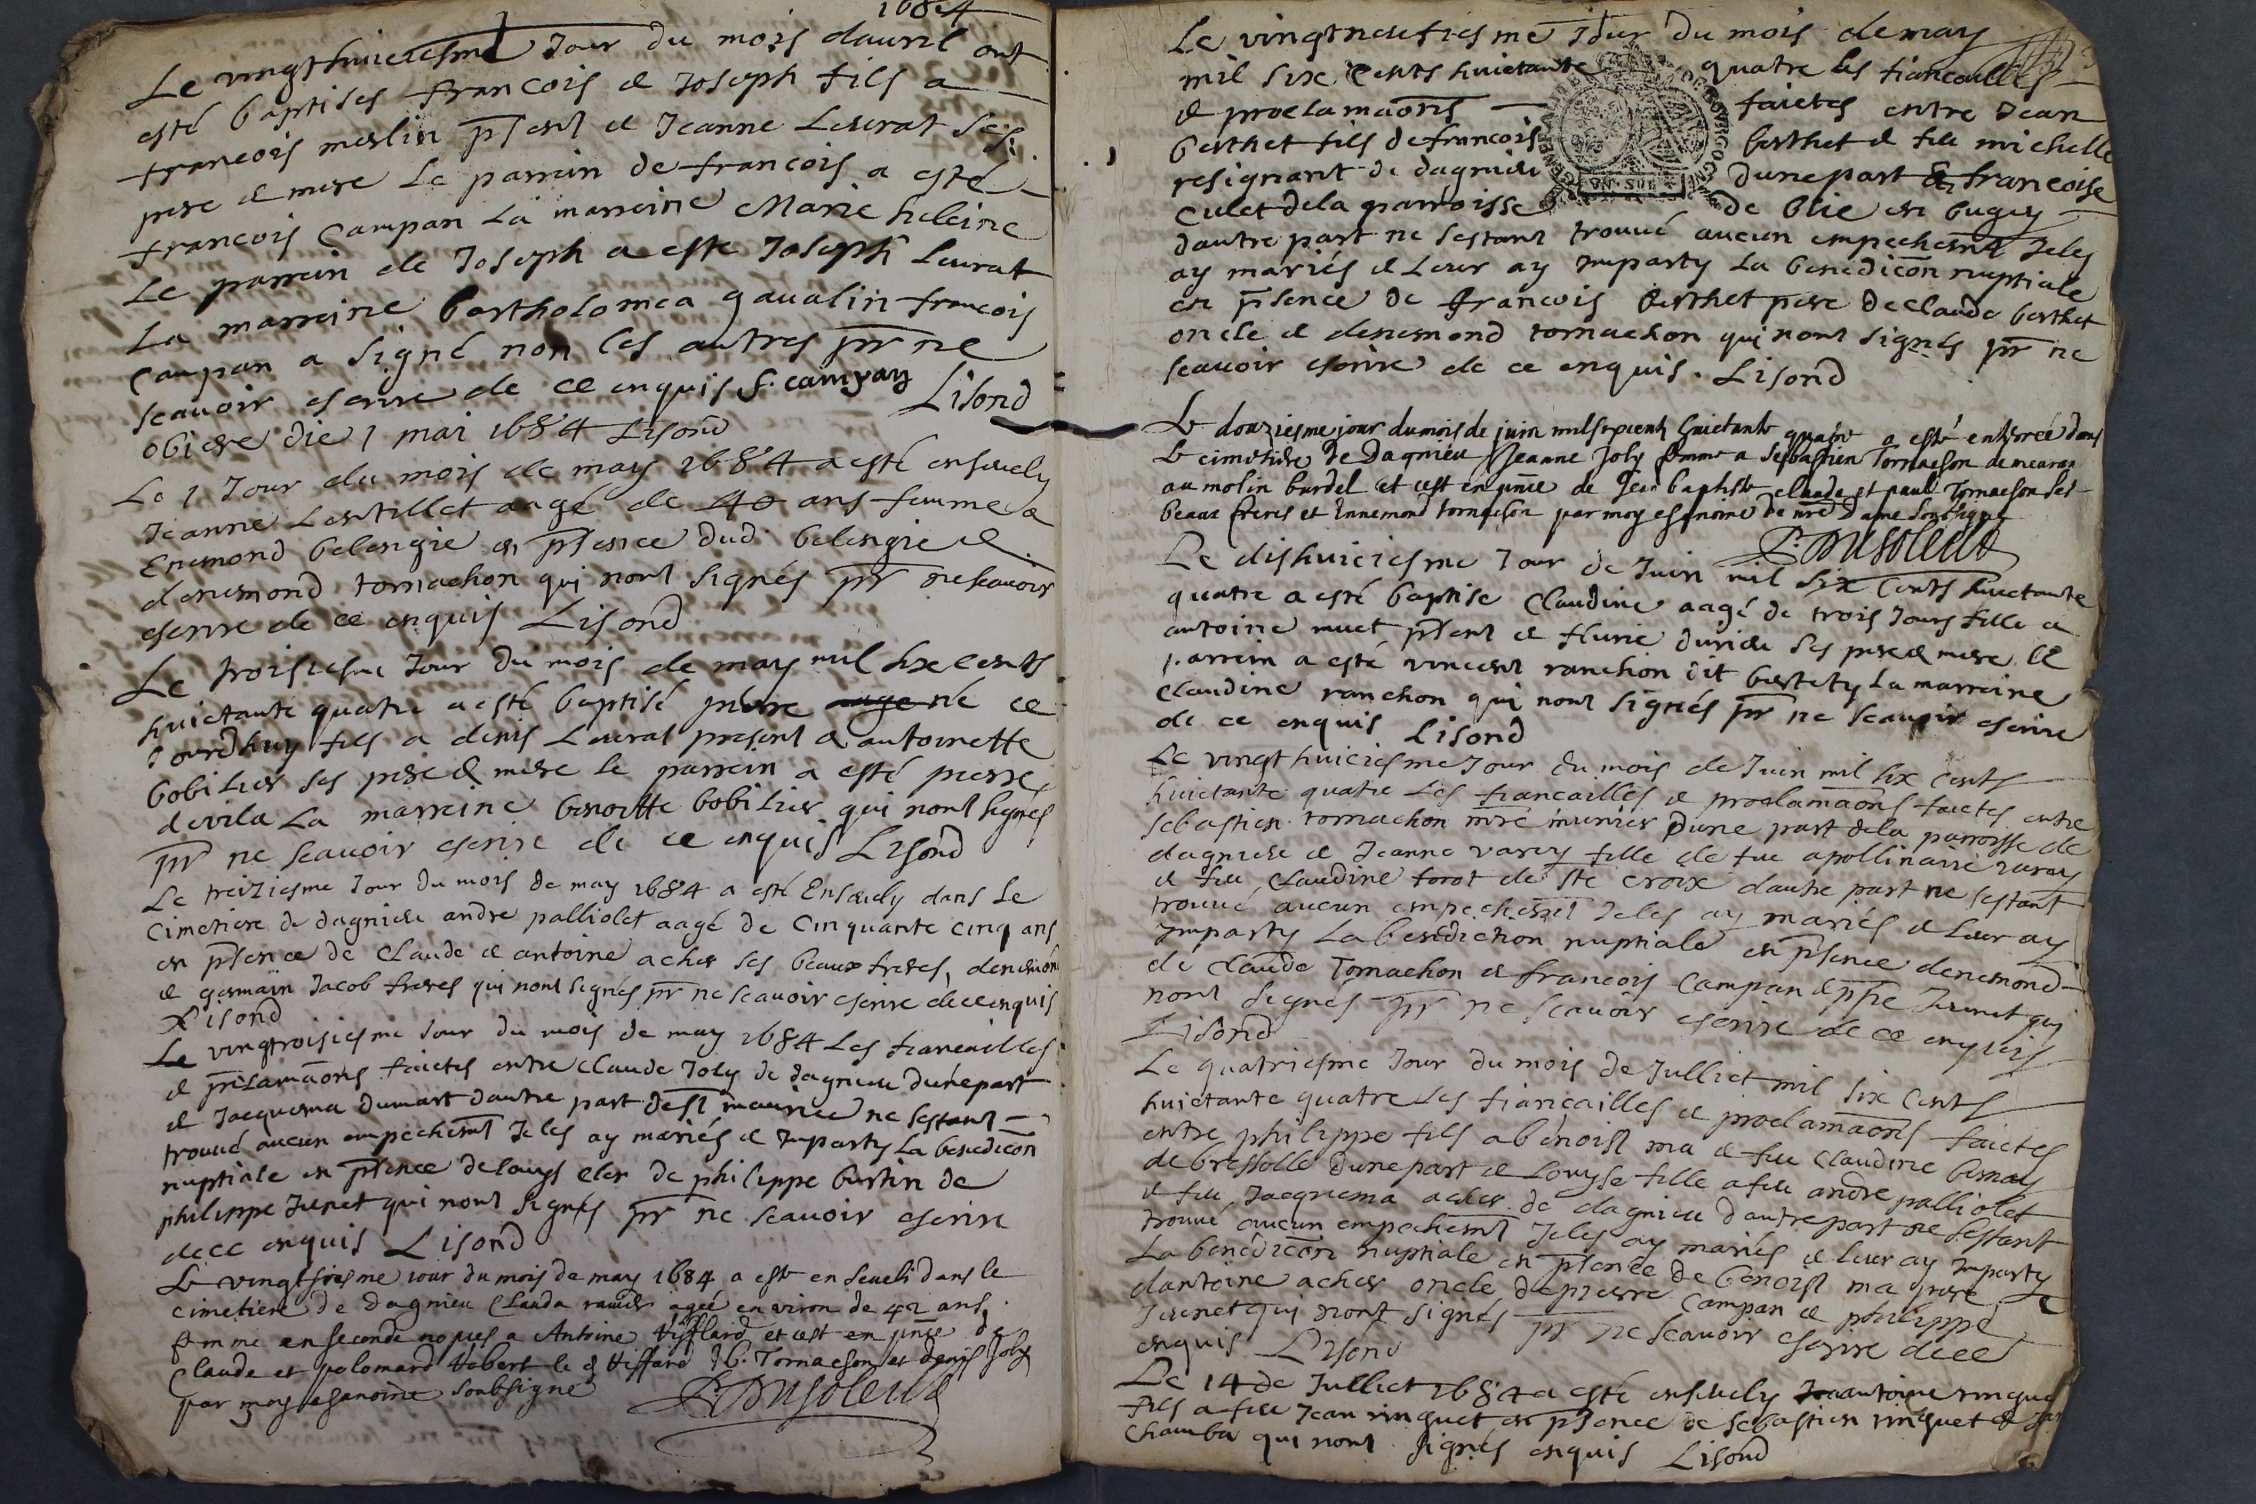 1684
Le vingthuiciesme Jour du mois dauril ont
esté baptises francois & Joseph fils a
francois merlin pnt & Jeanne Leurat ses
pere & mere Le parrain de francois a esté
francois Campan La marreine Marie heleine
Le parrein de Joseph a esté Joseph Leurat
La marreine bartholomea gaualin francois
Campan a signé non les autres pr ne
scauoir escrire de ce enquis f. campan
Lisond
obiere die 1 mai 1684 Lisond
Le 1 Jour du mois de may 1684 a esté enseuely
Jeanne Lentillet aagé de 40 ans femme a
Enemond belengie en pnce dud belengie &
denemond tornachon qui nont signés pr ne scauoir
escrire de ce enquis Lisond
Le troisiesme Jour du mois de may mil six cents
huictante quatre a esté baptisé pierre aage né ce
Jourdhuy fils a denis Leurat present & antoinette
bobilier ses pere & mere le parrein a esté pierre
devila La marreine benoitte bobilier qui nont signés
pr ne scauoir escrire de ce enquis Lisond
Le treiziesme Jour du mois de may 1684 a esté Enseuely dans Le
Cimetiere de dagnieu andre palliolet aagé de Cinquante Cinq ans
en pnce de Claude & antoine acher ses beaux freres, denemond
& germain Jacob freres qui nont signés pr ne scauoir escrire de ce enquis
Lisond
Le vingtroisiesme Jour du mois de may 1684 Les fiancailles
& proclamaons faictes entre Claude Joly de dagnieu dune part
& Jacquema dumart dautre part de st maurice ne sestant
trouué aucun empechemt Je les ay mariés & Imparty La benedicon
nuptiale en pnce de Louys cler de philippe bertin de
philippe Junet qui nont signés pr ne scauoir escrire
de ce enquis Lisond
Le vingtsixiesme iour du mois de may 1684 a esté enseueli dans le
cimetiere de dagnieu Clauda agée environ de 42 ans,
femme en seconde nopces a Antoine Hifflard et cest en pnce de
Claude et polomard Hobert le d Hiffard Jb. Tornachon et denis Joly
par moy chanoine soubsigné
Le vingtneufiesme Jour du mois de may
mil six Cents huictante quatre les fiancailles
& proclamaons faictes entre Jean
berthet fils de francois berthet & feu michelle
resignant de dagnieu dune part & francoise
Culet dela parroisse de blie en bugey
dautre part ne sestant trouué aucun empechemt Je les
ay mariés & Leur ay Imparty La benedicon nuptiale
en pnce de francois berthet pere de Claude berthet
oncle & denemond tornachon qui nont signés pr ne
scauoir escrire de ce enquis. Lisond
Le douziesme jour du mois de juin mil six cents huictante quatre a esté enterrée dans
Le cimetiere de Dagnieu Jeanne Joly femme a Sebastien Tornachon demeurant
au molin burdel et cest en pnce de Jean baptiste claude et paul Tornachon ses
beaux freres et Ennemond tornachon par moy chanoine de nre Dame soubsigné
Le dishuiciesme Jour de Juin mil six Cents huictante
quatre a esté baptise Claudine aagé de trois Jours fille a
antoine muet pnt & fleurie durieu ses pere & mere le
parrein a esté vincent ranchon dit bertety La marreine
Claudine ranchon qui nont signés pr ne scauoir escrire
de ce enquis Lisond
Le vingthuiciesme Jour du mois de Juin mil six Cents
huictante quatre Les fiancailles & proclamaons faictes entre
sebastien tornachon mre munier dune part dela parroisse de
dagnieu & Jeanne varey fille de feu apollinaire varey
& feu Claudine forot de ste croix dautre part ne sestant
trouué aucun empechemt Je les ay mariés & Leur ay
Imparty La benediction nuptiale en pnce denemond
de Claude Tornachon & francois Campan & phe Junet qui
nont signés pr ne scauoir escrire de ce enquis
Lisond
Le quatriesme Jour du mois de Julliet mil six Cents
huictante quatre Les fiancailles & proclamaons faictes
entre philippe fils a benoist ma & feu Claudine bernay
de bressolle dune part & Louyse fille a feu andre palliolet
& feu Jacquema acher de dagnieu dautre part ne sestant
trouué aucun empechemt Je les ay mariés & leur ay Imparty
La benedicon nuptiale en pnce de benoist ma frere
dantoine acher oncle de pierre Campan & philippe
Junet qui nont signés pr ne scauoir escrire de ce
enquis Lisond
Le 14 de Julliet 1684 a esté enseuely antoine rinquet
fils a feu Jean rinquet en pnce de sebastien rinquet &
Chamba qui nont signés enquis Lisond